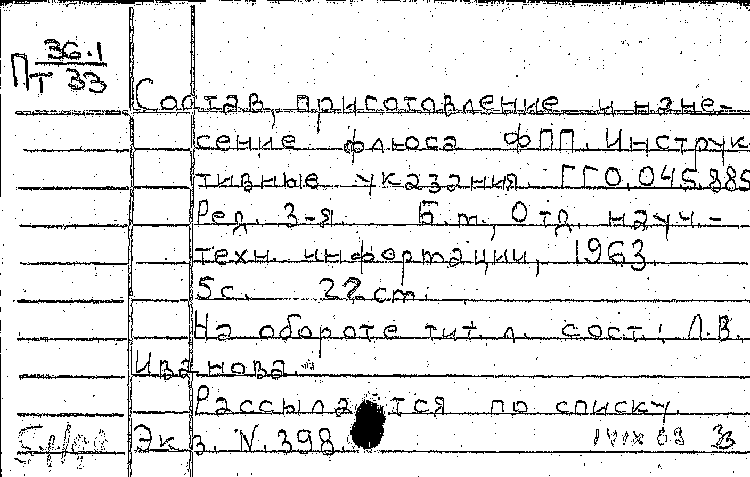 36.1
Пт 33
Состав, приготовление и нане-
сение флюса ФПП. Инструк
тивные указания. ГГО.045.885
Ред. 3-я. Б.м., Отд. науч.-
техн. информации, 1963.
5с. 22 см.
На обороте тит. л. сост.: Л.В.
Иванова.
Рассылается по списку.
Экз. N. 398.